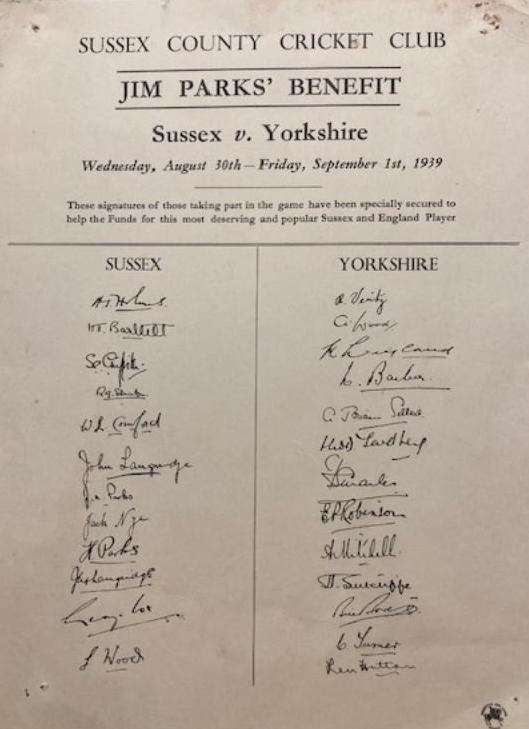 SUSSEX COUNTY CRICKET CLUB
JIM PARKS' BENEFIT
Sussex v. Yorkshire
Wednesday, August 30th — Friday, September 1st, 1939
These signatures of those taking part in the game have been specially secured to
help the Funds for this most deserving and popular Sussex and England Player
SUSSEX
H.T. Bartlett
John Langridge
Jim Parks
Jack Nye
H Parks
Jas Langridge
George Cox
J Wood
YORKSHIRE
H. Verity
C. Wood
W. Barber
E P Robinson
A Mitchell
H. Sutcliffe
C Turner
Len Hutton